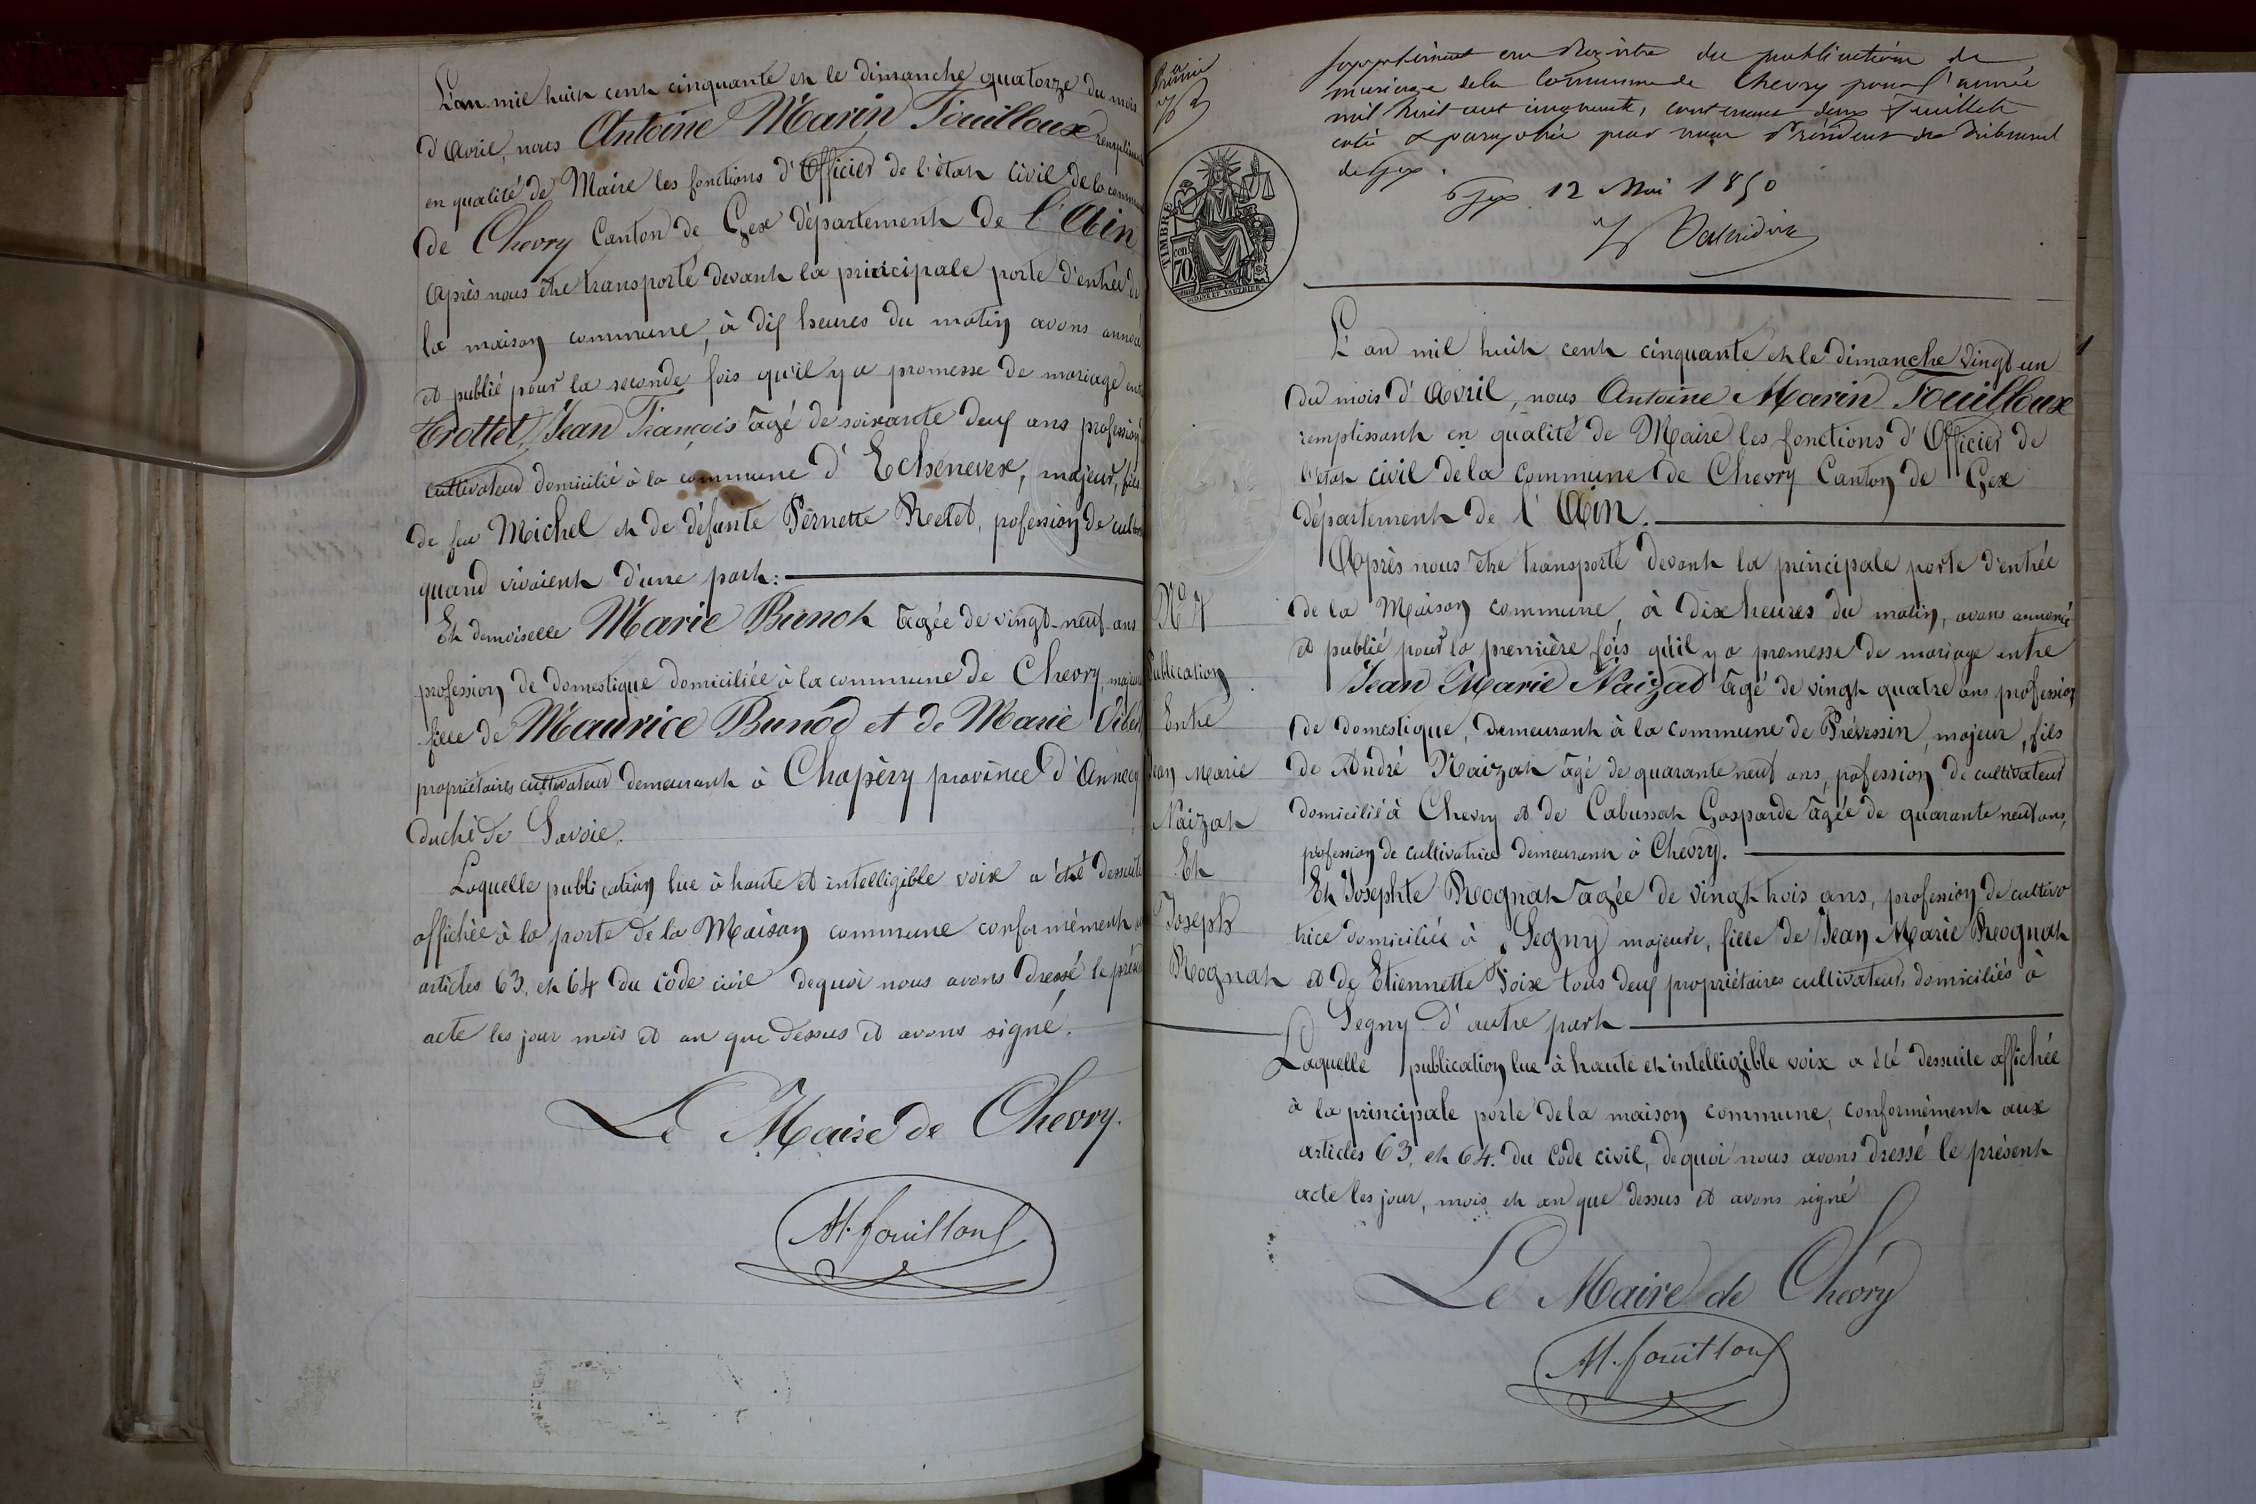 L'an mil huit cent cinquante et le dimanche quatorze du mois
d'Avril, nous Antoine Marin Fouilloux remplissant
en qualité de Maire les fonctions d'Officier de l'état civil de la commune
de Chevry Canton de Gex département de l'Ain
Après nous être transporté devant la principale porte d'entrée de
la maison commune, à dix heures du matin avons annoncé
et publié pour la seconde fois qu'il y a promesse de mariage entre
Crottet, Jean François âgé de soixante deux ans profession
cultivateur domicilié à la commune d'Echenevex, majeur, fils
de feu Michel et de défunte Pernette Rectet, pofession de
quand vivaient d'une part:
Et demoiselle Marie Bunot âgée de vingt-neuf ans
profession de domestique domiciliée à la commune de Chevry, majeure
fille de Maurice Bunod et de Marie
propriétaires cultivateur demeurant à Chapèry province d'Annecy
duché de Savoie.
Laquelle publication lue à haute et intelligible voix a été dessuite
affichée à la porte de la Maison commune conformément
articles 63. et 64 du code civil dequoi nous avons dressé le
acte les jour mois et an que dessus et avons signé.
Le Maire de Chevry.
M. fouilloux
Premier
Supplément au Registre de publication de
mariage de la Commune de Chevry pour l'année
mil huit cent cinquante, contenant deux feuillets
coté & paraphée par nous Président du Tribunal
de Gex.
Gex 12 Mai 1850
TIMBRE
70
L'an mil huit cent cinquante et le dimanche vingt-un
du mois d'Avril, nous Antoine Marin Fouilloux
remplissant en qualité de Maire les fonctions d'Officier de
l'état civil de la Commune de Chevry Canton de Gex
département de l'Ain.
Après nous être transporté devant la principale porte d'entrée
de la Maison commune, à dix heures du matin, avons annoncé
et publié pour la première fois qu'il y a promesse de mariage entre
Jean Marie Naizat âgé de vingt quatre ans profession
de domestique, demeurant à la commune de Prévessin, majeur, fils
de André Naizat âgé de quarante neuf ans, pofession de cultivateur
domicilié à Chevry et de Cabussat Gasparde âgée de quarante neuf ans,
profession de cultivatrice demeurant à Chevry.
Et Josephte Rognat âgée de vingt trois ans, profession de cultiva
trice domiciliée à Segny majeure, fille de Jean Marie Rognat
et de Etiennette Foix tous deux propriétaires cultivateurs domiciliés à
Segny d'autre part
Laquelle publication lue à haute et intelligible voix a été dessuite affichée
à la principale porte de la maison commune, conformément aux
articles 63. et 64. du Code civil, dequoi nous avons dressé le présent
acte les jour, mois et an que dessus et avons signé
Le Maire de Chevry
M. fouilloux
N° 7
Publication
Entre
Jean Marie
Naizat
Et
Joseph
Rognat